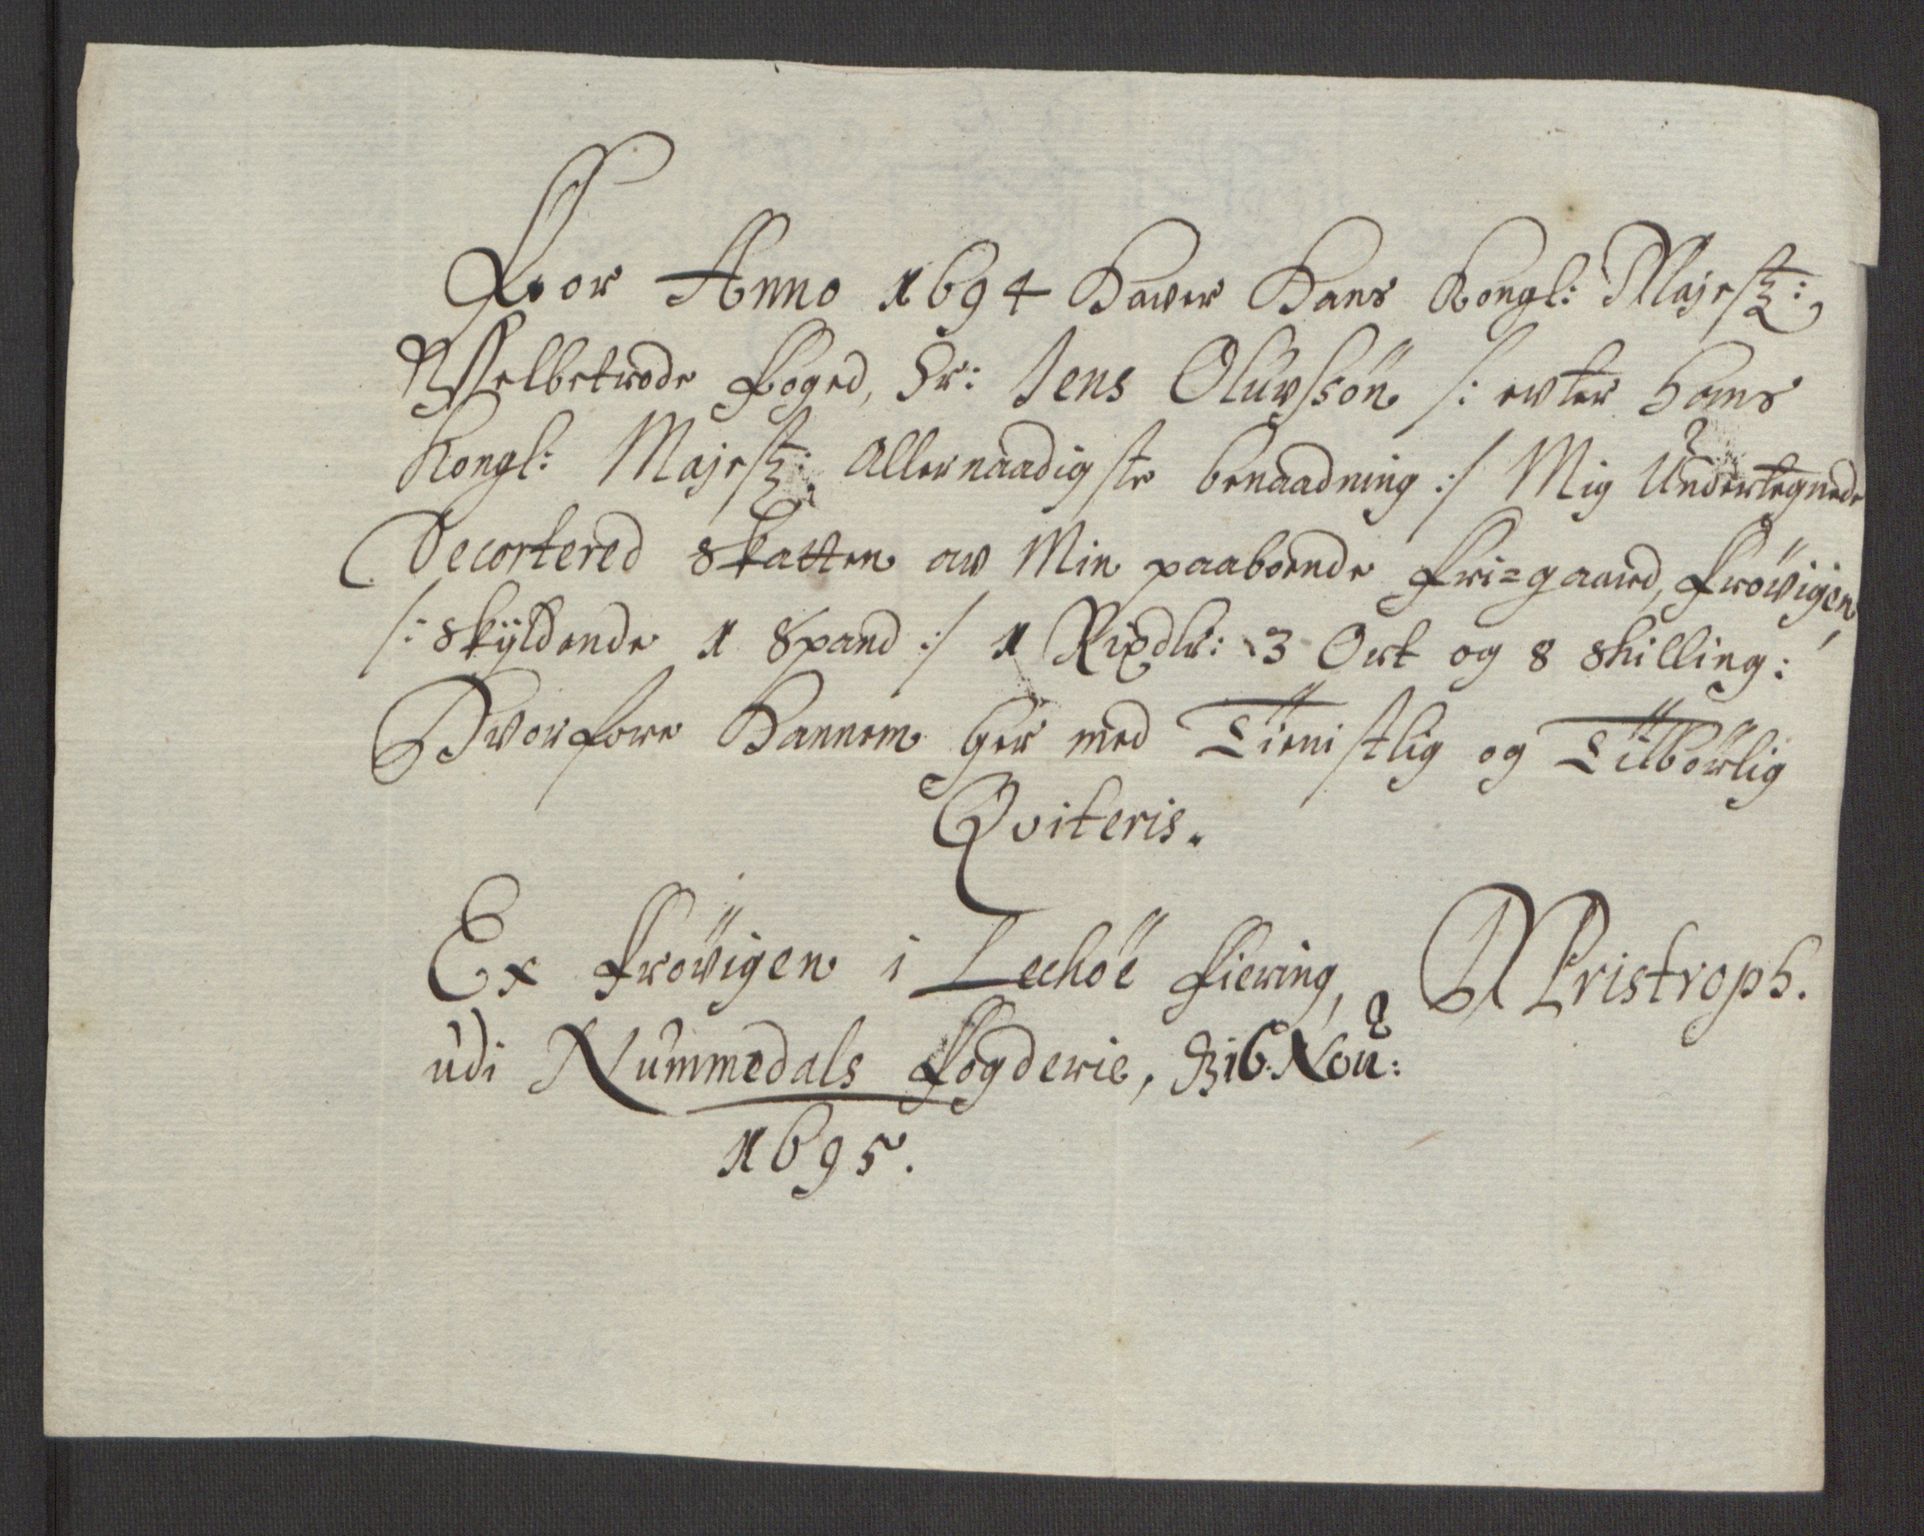 For Anno 1694 Haver Hans Kongl: Majestz:
Welbetrode Foged, Sr: Jens Olüvssön /: evter Hans
Kongl: Majestz: Allernaadigste benaadning :/ Mig Undertegnede
Decortered Skatten av Min paaboende Fri=gaard, Frövigen,
/: Skÿldende 1 Spand :/ 1 Rixdlr: 3 Ort og 8 Skilling:
Hvorfore Hannem her med Tienistlig og Tilbörlig
Qviteris.
Ex Frövigen i Lechöe Fiering, APristroph.
udi Nummedals Fogderie, 16. Nou:
1695.